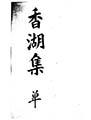 香湖集 单